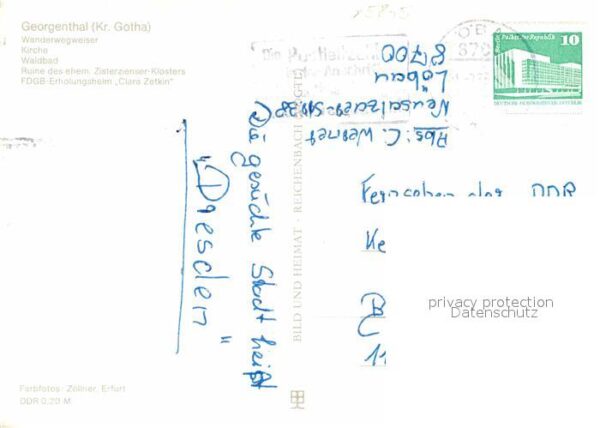 Georgenthal (Kr. Gotha)
Wanderwegweiser
Kirche
Waldbad
Ruine des ehem. Zisterzienser-Klosters
FDGB-Erholungsheim „Clara Zetkin"
Die gesuchte Stadt heißt
„Dresden"
BILD UND HEIMAT · REICHENBACH
Abs: C. Werner
Löbau
8700
LÖBA
Die Postleitzahl
10
Palast der Republik
Berlin
DEUTSCHE DEMOKRATISCHE REPUBLIK
Fernsehen der DDR
Ke
11
privacy protection
Datenschutz
Farbfotos: Zöllner, Erfurt
DDR 0,20 M